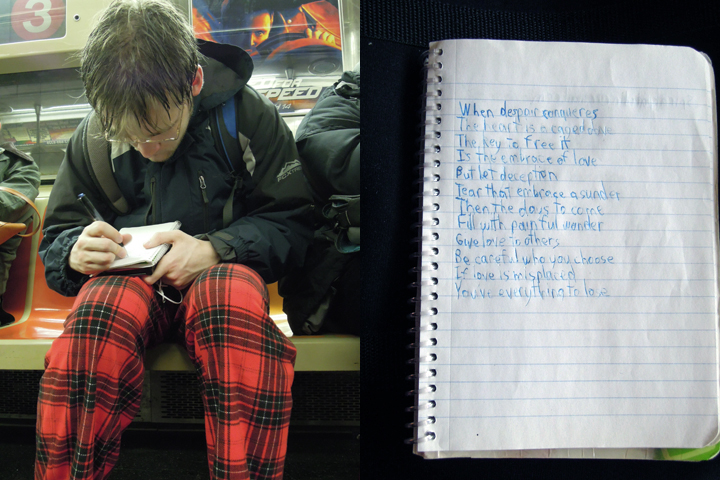 3
NEED FOR
SPEED
3.14
When despair conqueres
The heart is a caged dove
The key to free it
Is the embrace of love
But let deception
Tear that embrace asunder
Then the days to come
Fill with painful wonder
Give love to others
Be careful who you choose
If love is misplaced
You've everything to lose